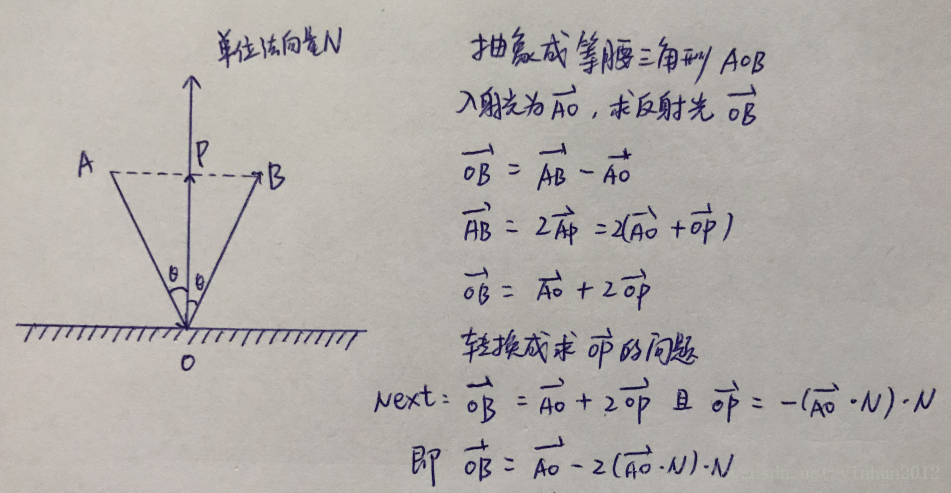 单位法向量N
A
P
B
θ
θ
O
抽象成等腰三角形 AOB
入射光为AO，求反射光 OB
OB = AB - AO
AB = 2AP = 2(AO + OP)
OB = AO + 2OP
转换成求 OP 的问题
Next: OB = AO + 2OP 且 OP = -(AO · N) · N
即 OB = AO - 2(AO · N) · N